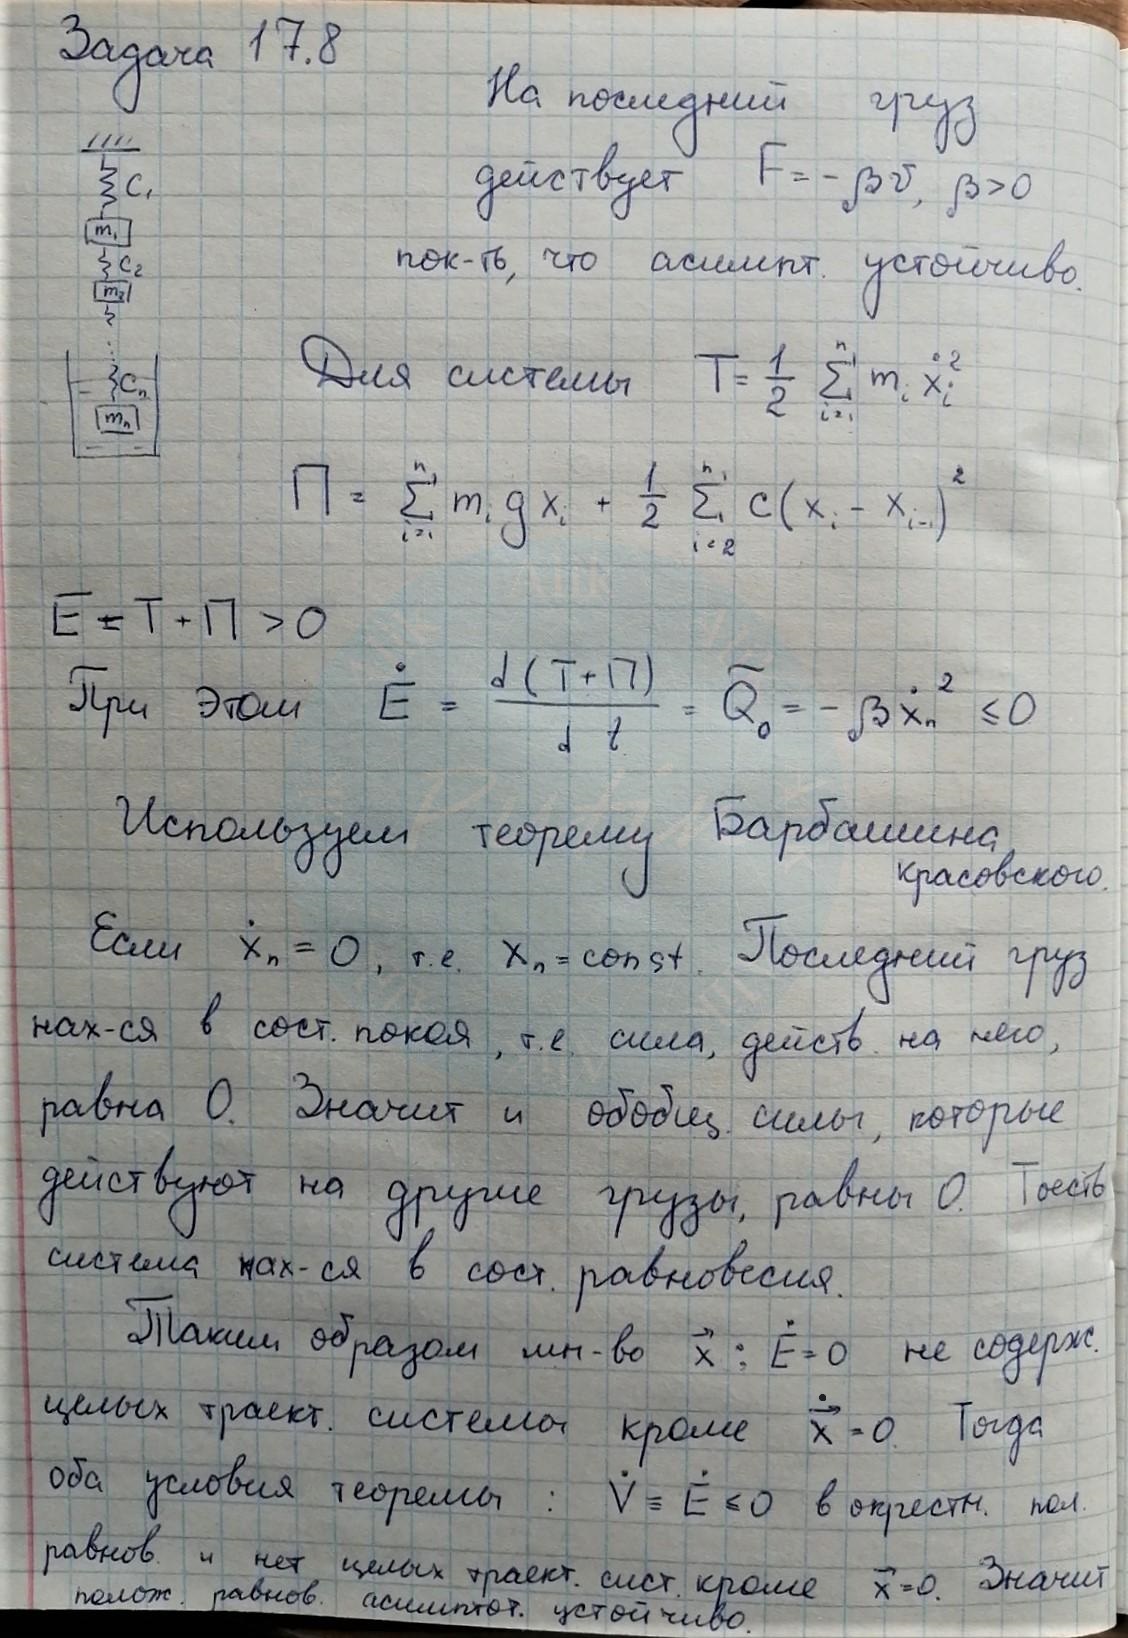 Задача 17.8
На последний груз
действует F = -βv̄, β>0
пок-ть, что асимпт. устойчиво.
C₁
m₁
C₂
m₂
Cₙ
mₙ
Для системы T = 1/2 Σⁿᵢ₌₁ mᵢ ẋᵢ²
П = Σⁿᵢ₌₁ mᵢ g xᵢ + 1/2 Σⁿᵢ₌₂ c(xᵢ - xᵢ₋₁)²
E = T + П > 0
При этом Ė = d(T+П)/dt = Q̃₀ = -βẋₙ² ≤ 0
Используем теорему Барбашина
красовского.
Если ẋₙ = 0, т.е. xₙ = const. Последний груз
нах-ся в сост. покоя, т.е. сила, действ. на него,
равна 0. Значит и обобщ. силы, которые
действуют на другие грузы, равны 0. Тоесть
система нах-ся в сост. равновесия.
Таким образом мн-во x⃗ : Ė = 0 не содерж.
целых траект. системы кроме ẋ⃗ = 0. Тогда
оба условия теоремы : V̇ ≡ Ė ≤ 0 в окрестн. пол.
равнов. и нет целых траект. сист. кроме x⃗ = 0. Значит
полож. равнов. асимптот. устойчиво.